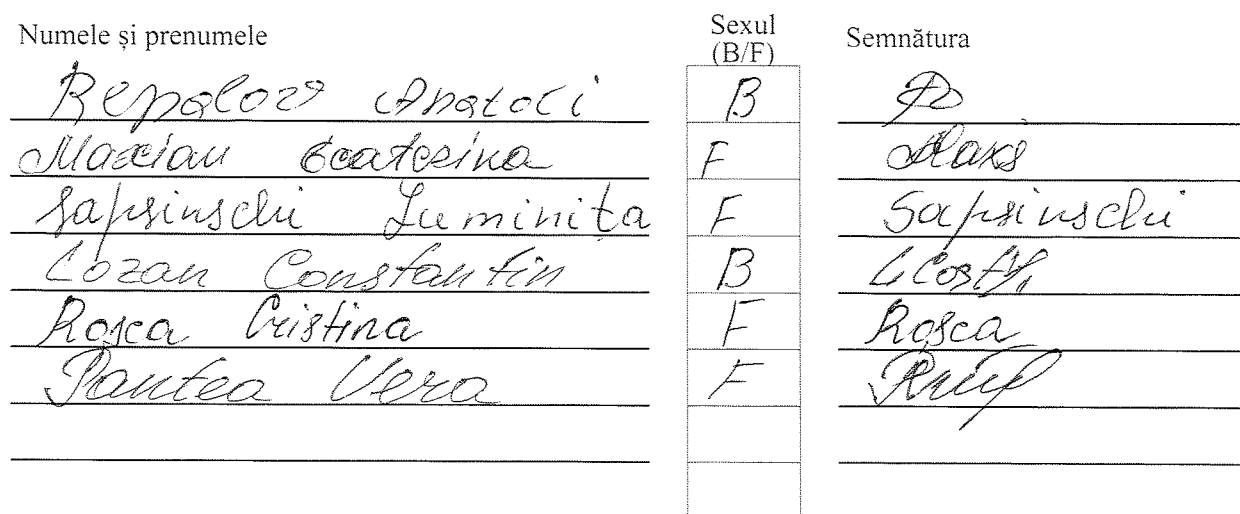 Numele și prenumele Sexul (B/F) Semnătura
Anatoli B
Ecaterina F
Sapsinschi Luminița F Sapsinschi
Cozan Constantin B
Roșca Cristina F Roșca
Pantea Vera F